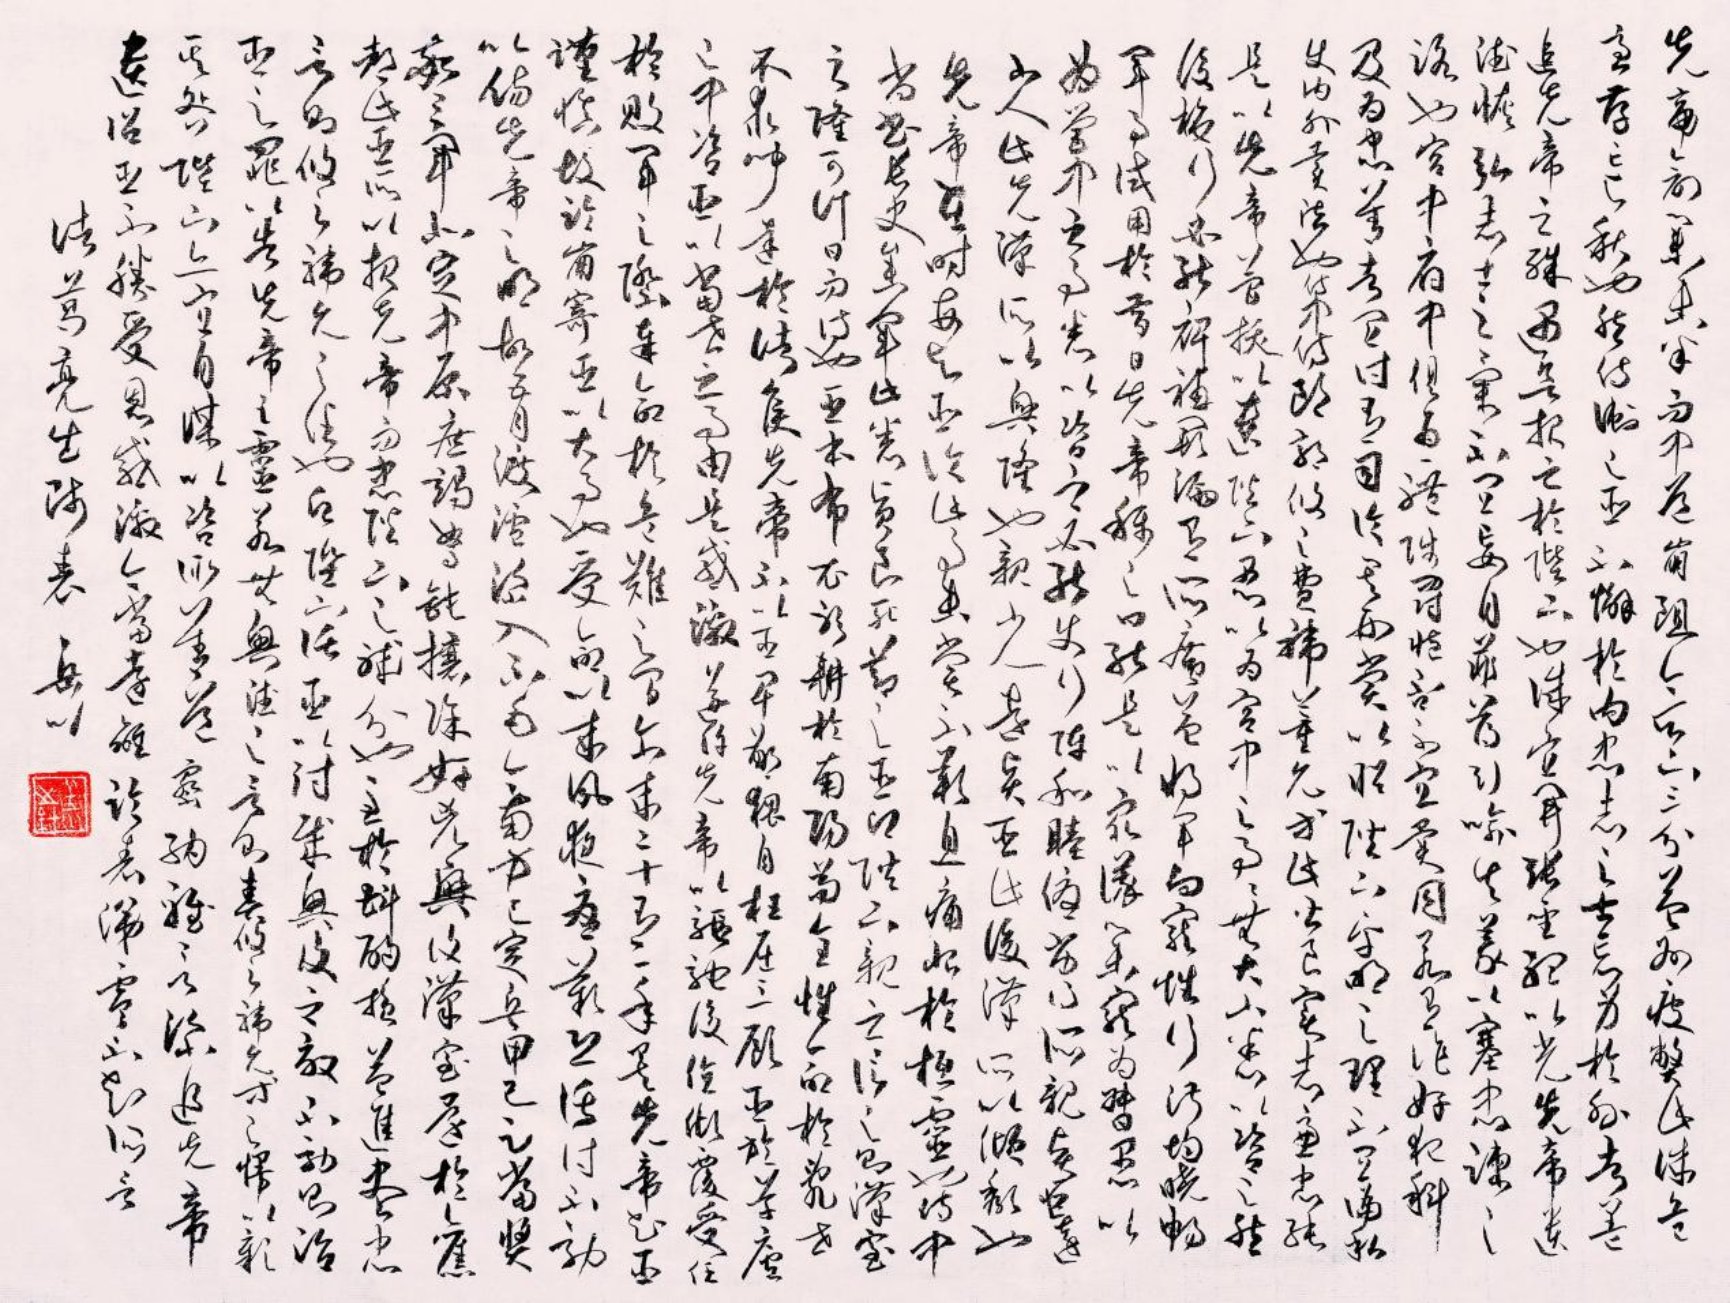 先帝創業未半而中道崩殂今天下三分益州疲弊此誠危
急存亡之秋也然侍衛之臣不懈於內忠志之士忘身於外者蓋
追先帝之殊遇欲報之於陛下也誠宜開張聖聽以光先帝遺
德恢弘志士之氣不宜妄自菲薄引喻失義以塞忠諫之
路也宮中府中俱為一體陟罰臧否不宜異同若有作奸犯科
及為忠善者宜付有司論其刑賞以昭陛下平明之理不宜偏私
使內外異法也侍中侍郎郭攸之費禕董允等此皆良實志慮忠純
是以先帝簡拔以遺陛下愚以為宮中之事事無大小悉以咨之然
後施行必能裨補闕漏有所廣益將軍向寵性行淑均曉暢
軍事試用於昔日先帝稱之曰能是以眾議舉寵為督愚以
為營中之事悉以咨之必能使行陣和睦優劣得所親賢臣遠
小人此先漢所以興隆也親小人遠賢臣此後漢所以傾頹也
先帝在時每與臣論此事未嘗不歎息痛恨於桓靈也侍中
尚書長史參軍此悉貞良死節之臣願陛下親之信之則漢室
之隆可計日而待也臣本布衣躬耕於南陽苟全性命於亂世
不求聞達於諸侯先帝不以臣卑鄙猥自枉屈三顧臣於草廬
之中咨臣以當世之事由是感激遂許先帝以驅馳後值傾覆受任
於敗軍之際奉命於危難之間爾來二十有一年矣先帝知臣
謹慎故臨崩寄臣以大事也受命以來夙夜憂歎恐託付不效
以傷先帝之明故五月渡瀘深入不毛今南方已定兵甲已足當獎
帥三軍北定中原庶竭駑鈍攘除奸凶興復漢室還於舊
都此臣所以報先帝而忠陛下之職分也至於斟酌損益進盡忠
言則攸之禕允之任也願陛下託臣以討賊興復之效不效則治
臣之罪以告先帝之靈若無興德之言則責攸之禕允等之慢以彰
其咎陛下亦宜自謀以咨諏善道察納雅言深追先帝
遺詔臣不勝受恩感激今當遠離臨表涕零不知所言
諸葛亮出師表